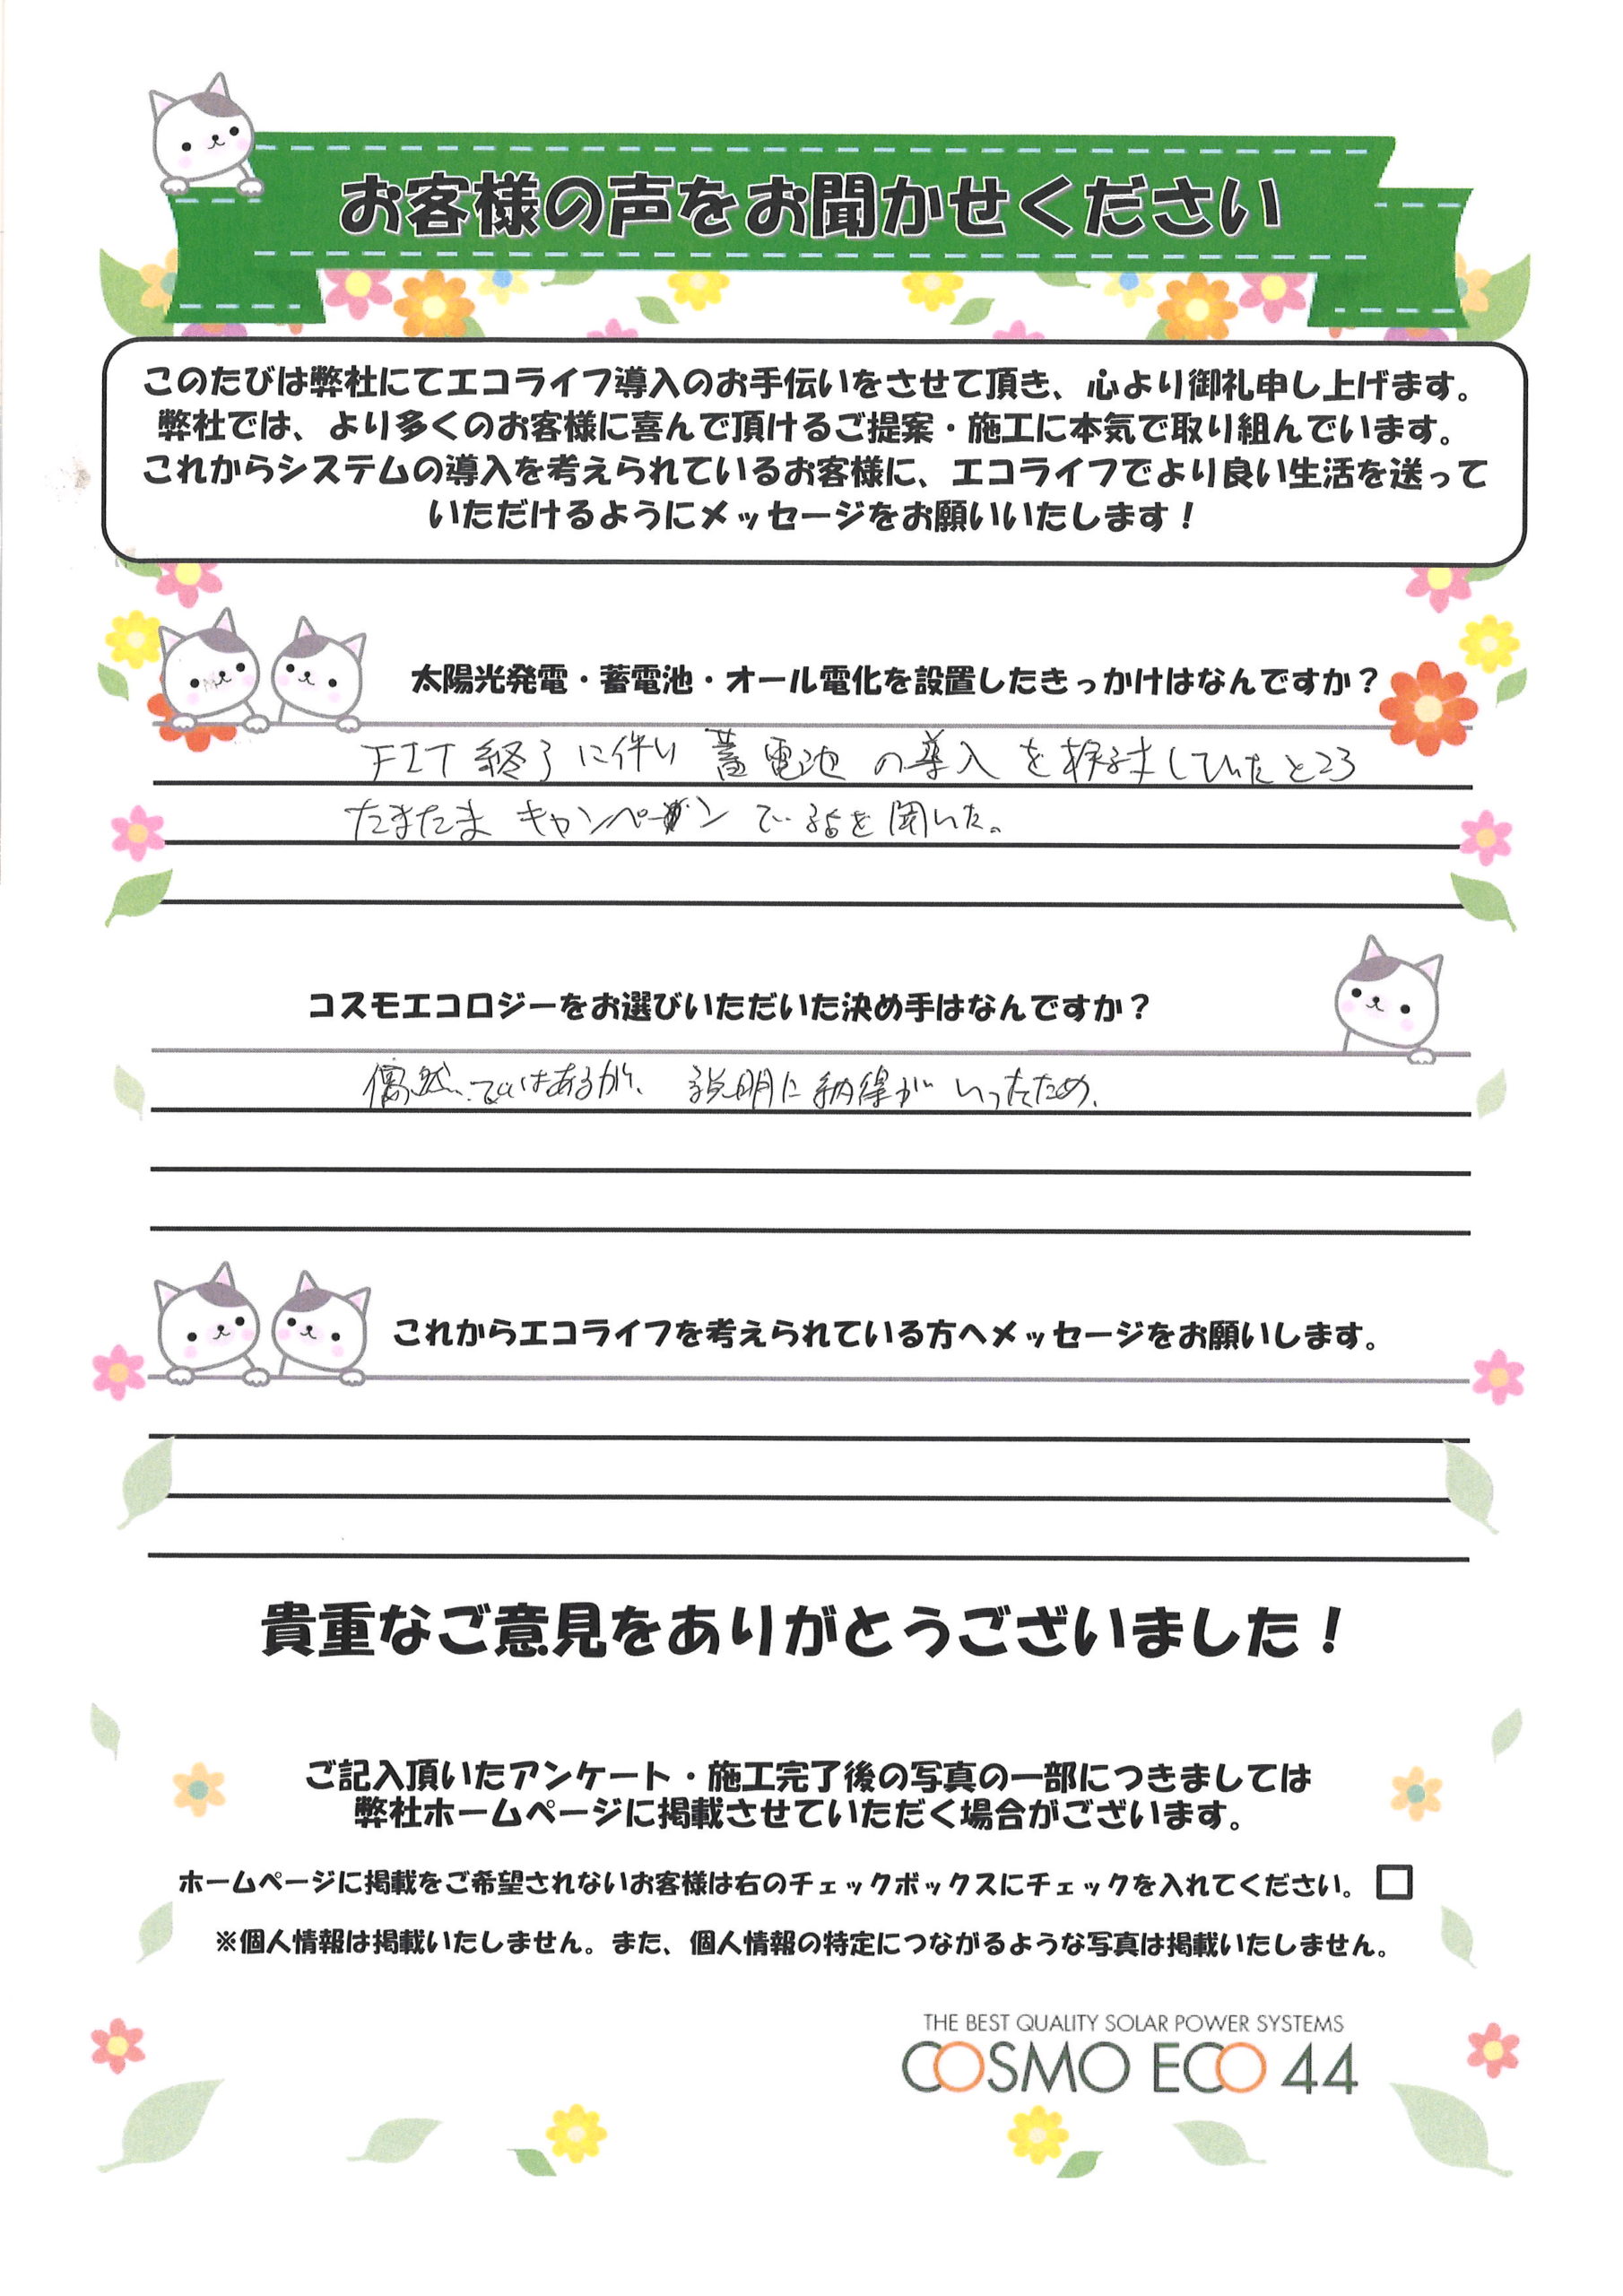 お客様の声をお聞かせください
このたびは弊社にてエコライフ導入のお手伝いをさせて頂き、心より御礼申し上げます。
弊社では、より多くのお客様に喜んで頂けるご提案・施工に本気で取り組んでいます。
これからシステムの導入を考えられているお客様に、エコライフでより良い生活を送って
いただけるようにメッセージをお願いいたします！
太陽光発電・蓄電池・オール電化を設置したきっかけはなんですか？
FIT終了に伴い蓄電池の導入をしていたところ
たまたまキャンペーンで話を聞いた。
コスモエコロジーをお選びいただいた決め手はなんですか？
偶然ではあるが、説明に納得がいったため、
これからエコライフを考えられている方へメッセージをお願いします。
貴重なご意見をありがとうございました！
ご記入頂いたアンケート・施工完了後の写真の一部につきましては
弊社ホームページに掲載させていただく場合がございます。
ホームページに掲載をご希望されないお客様は右のチェックボックスにチェックを入れてください。
※個人情報は掲載いたしません。また、個人情報の特定につながるような写真は掲載いたしません。
THE BEST QUALITY SOLAR POWER SYSTEMS
COSMO ECO 44